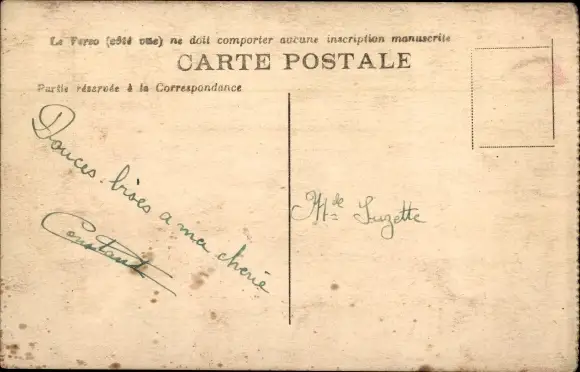 Le Verso (côté vue) ne doit comporter aucune inscription manuscrite
CARTE POSTALE
Partie réservée à la Correspondance
Douces bises a ma cherie
Constant
Suzette